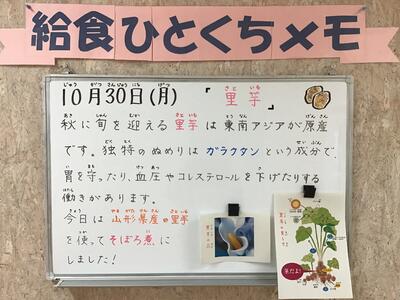 給食ひとくちメモ
10月30日(月) 「里芋」
秋に旬を迎える里芋は東南アジアが原産
です。独特のぬめりはガラクタンという成分で、
胃を守ったり、血圧やコレステロールを下げたりする
働きがあります。
今日は山形県産の里芋
を使ってそぼろ煮に
しました！